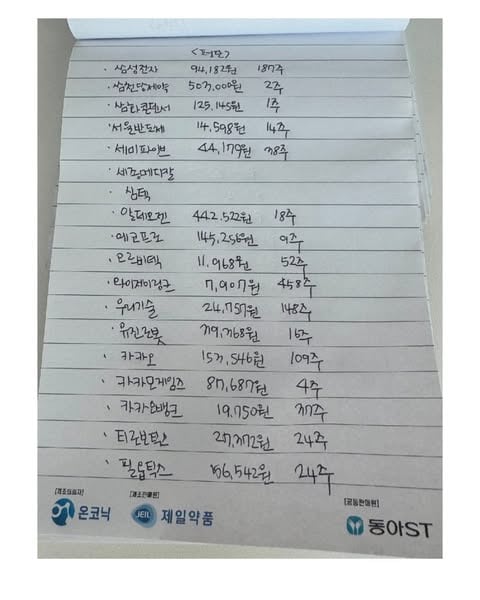 <평단>
· 삼성전자 94,182원 187주
· 삼천당제약 503,000원 2주
· 삼화콘덴서 125,145원 1주
· 서울반도체 14,598원 14주
· 세미파이브 44,179원 38주
· 세종메디칼
· 삼텍
· 알테오젠 442,522원 18주
· 에코프로 145,256원 9주
· 오르비텍 11,968원 52주
· 와이제이링크 7,907원 458주
· 우리기술 24,757원 148주
· 유진로봇 39,368원 16주
· 카카오 153,546원 109주
· 카카오게임즈 87,687원 4주
· 카카오뱅크 19,750원 37주
· 티로보틱스 27,372원 24주
· 필옵틱스 56,542원 24주
[제조의뢰자] [제조판매원] [공동판매원]
온코닉 JEIL 제일약품 동아ST